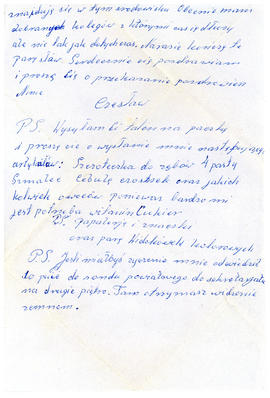 znajduję się w tym środowisku Obecnie mam
dobranych kolegów z którymi
ale nie tak jak dotychczas. Narazie kończę te
parę słów. Serdecznie cię pozdrawiam
i proszę Cię o przekazanie pozdrowień
Czesław
P.S. Wysyłam Ci talon na paczkę
i proszę cię o wysłanie mnie następujących
artykułów: Szczoteczka do zębów 4 pasty
Smalec cebulę czosnek oraz jakich
kolwiek owoców ponieważ bardzo mi
jest potrzeba witamin Cukier
P.S. papeterii i znaczki
oraz parę Widokówek kolorowych
P.S. Jeśli miałbyś życzenie mnie odwiedzić
to pisz do sądu powiatowego do sekretarjatu
na drugie piętro. Tam otrzymasz widzenie
zemnom.